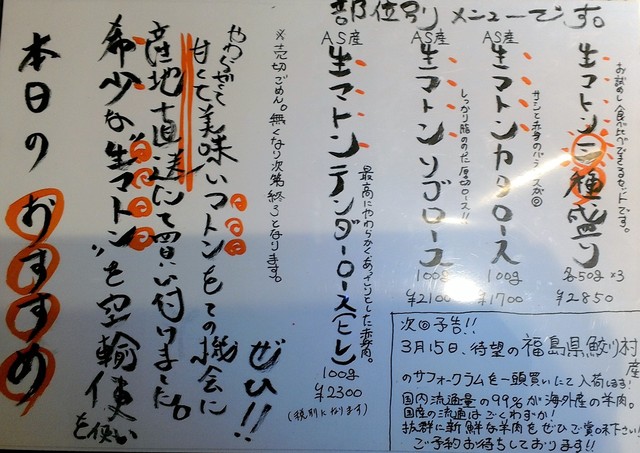 部位別メニューです。
お試めし食べ比べできるセットです。
生マトン三種盛り
各50g×3
¥2850
AS産
サシと赤身のバランスが◎
生マトンカタロース
100g
¥1700
AS産
しっかり脂ののった厚切ロース!!
生マトンリブロース
100g
¥2100
AS産
最高にやわらかくあっさりとした赤身肉。
生マトンテンダーロース(ヒレ)
100g
¥2300
(税別になります)
※売切ごめん。無くなり次第終了となります。
やわらかくて
甘くて美味いマトンをこの機会に
ぜひ!!
産地直送にて買い付けました。
希少な"生マトン"を空輸便を使い
本日のおすすめ
次回予告!!
3月15日、待望の福島県鮫川村産
のサフォークラムを一頭買いにて入荷します!
国内流通量の99%が海外産の羊肉。
国産の流通はごくわずか!
抜群に新鮮な羊肉をぜひご賞味下さい!
ご予約お待ちしております!!